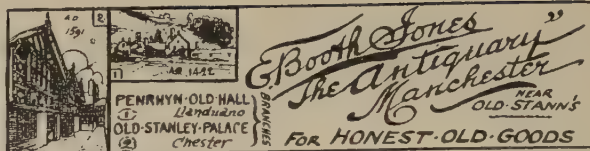 A.D
1591
2
1
A.D. 1422
PENRHYN·OLD·HALL
1 Llanduano
OLD·STANLEY·PALACE
2 Chester
BRANCHES
E. Booth Jones
"The Antiquary"
Manchester
NEAR
OLD·ST.ANN'S
FOR HONEST·OLD·GOODS